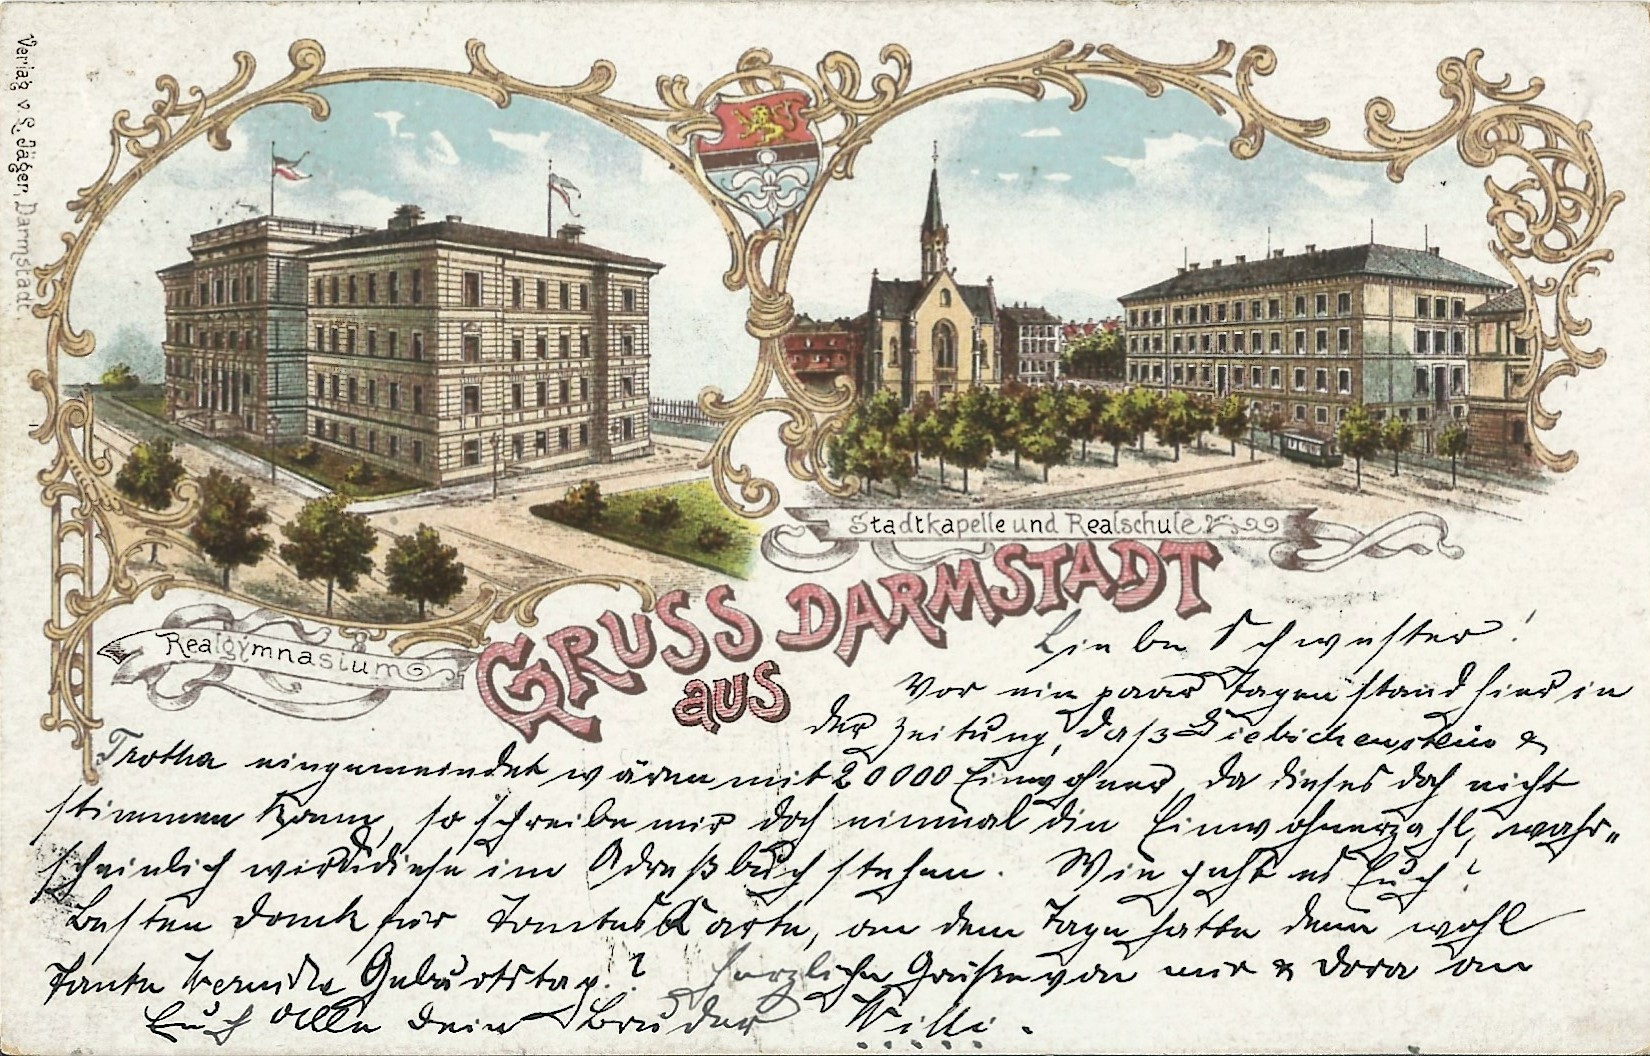 Verlag v. L. Jäger, Darmstadt.
Stadtkapelle und Realschule.
Realgymnasium
GRUSS
aus
DARMSTADT
Liebe Schwester!
Vor ein paar Tagen stand hier in
der Zeitung, daß Giebichenstein &
Trotha eingemeindet wären mit 20000 Einwohner, da dieses doch nicht
stimmen kann, so schreibe mir doch einmal die Einwohnerzahl, wahr-
scheinlich wird diese im Adreßbuch stehen. Wie geht es Euch?
Besten Dank für Tantes Karte, an dem Tage hatte denn wohl
Tante Geburtstag.? Herzliche Grüße von mir & Dora an
Euch Alle dein Bruder Willi.